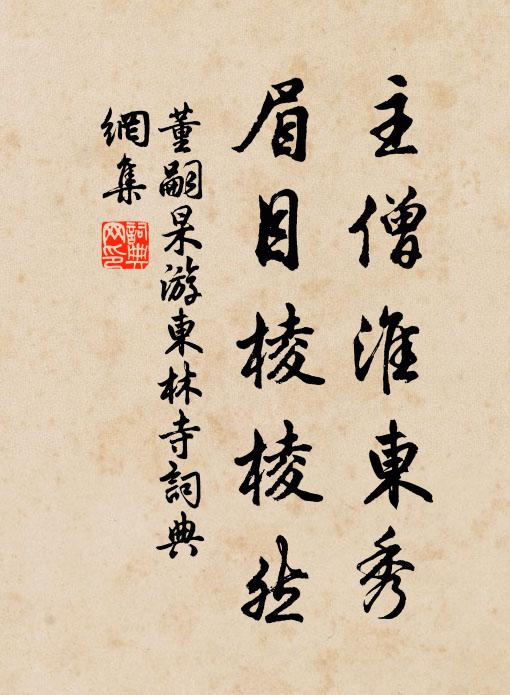 主僧淮東秀
眉目棱棱然
董嗣杲游東林寺詞典
網集
詞典网印